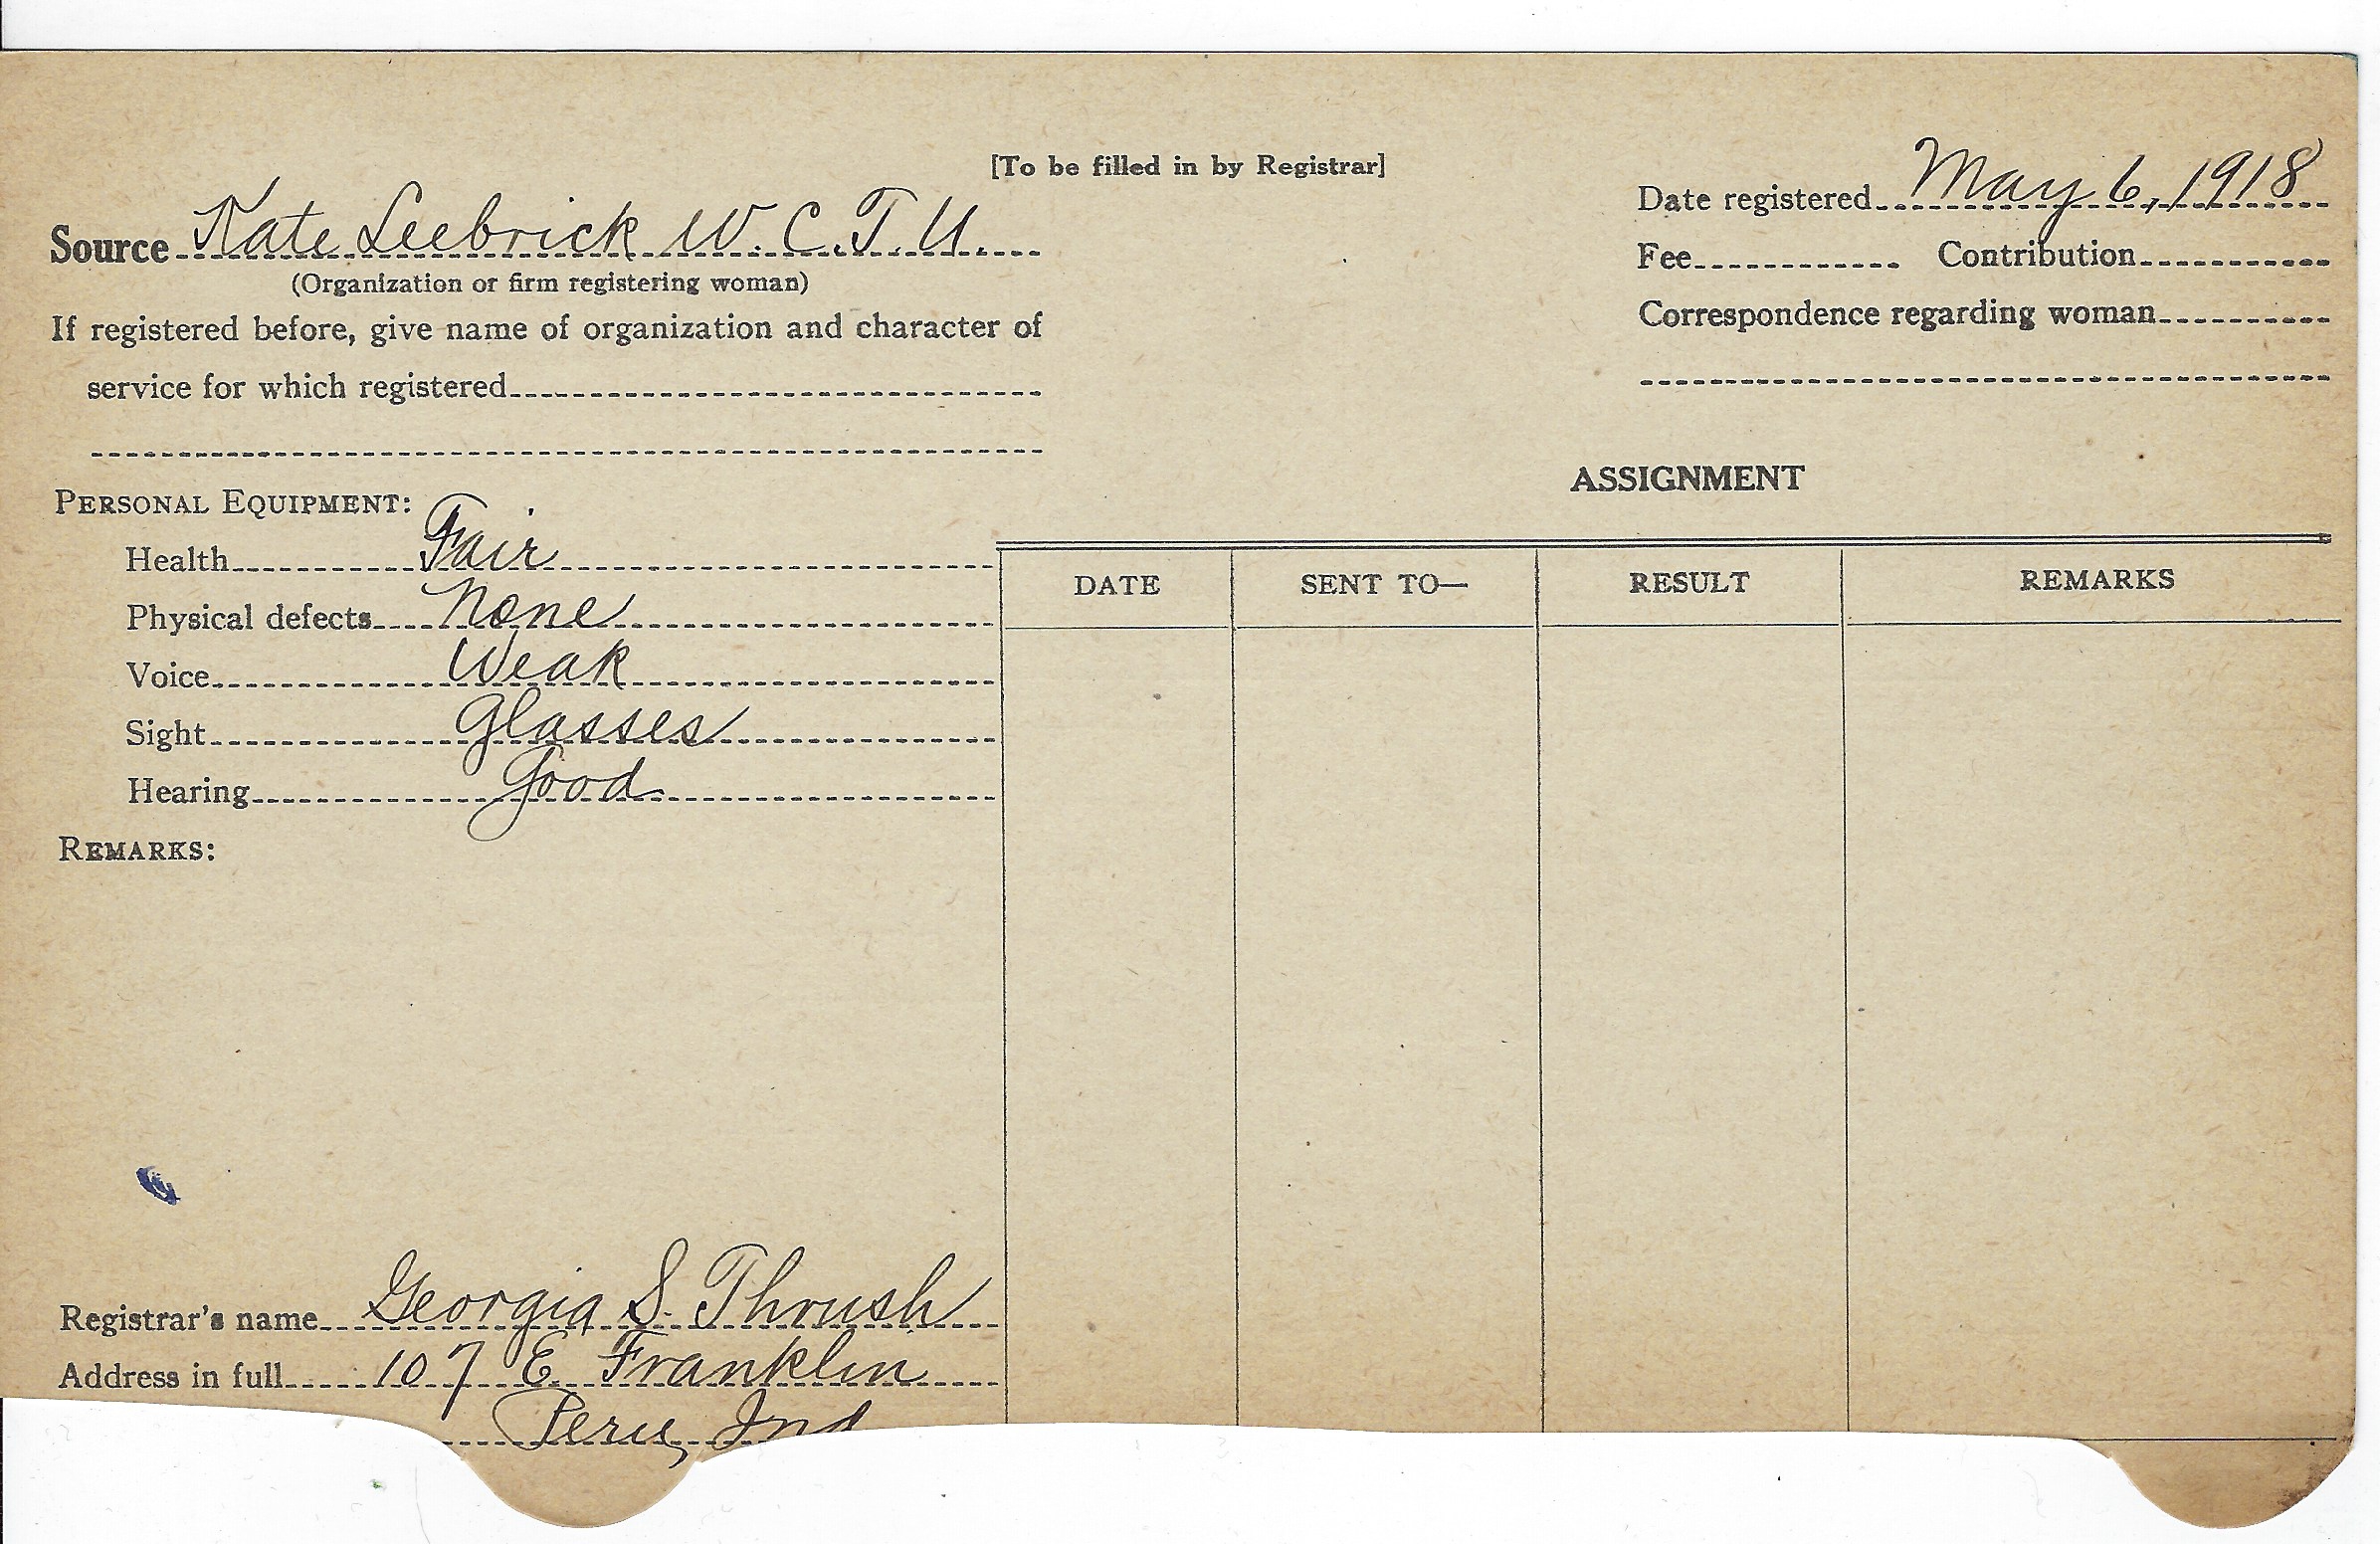 [To be filled in by Registrar]
Source Kate Leebrick W. C. T. U.
(Organization or firm registering woman)
If registered before, give name of organization and character of
service for which registered
Date registered May 6, 1918
Fee Contribution
Correspondence regarding woman
PERSONAL EQUIPMENT:
Health Fair
Physical defects None
Voice Weak
Sight Glasses
Hearing Good
REMARKS:
ASSIGNMENT
DATE SENT TO— RESULT REMARKS
Registrar's name Georgia S. Thrush
Address in full 107 E Franklin
Peru, Ind